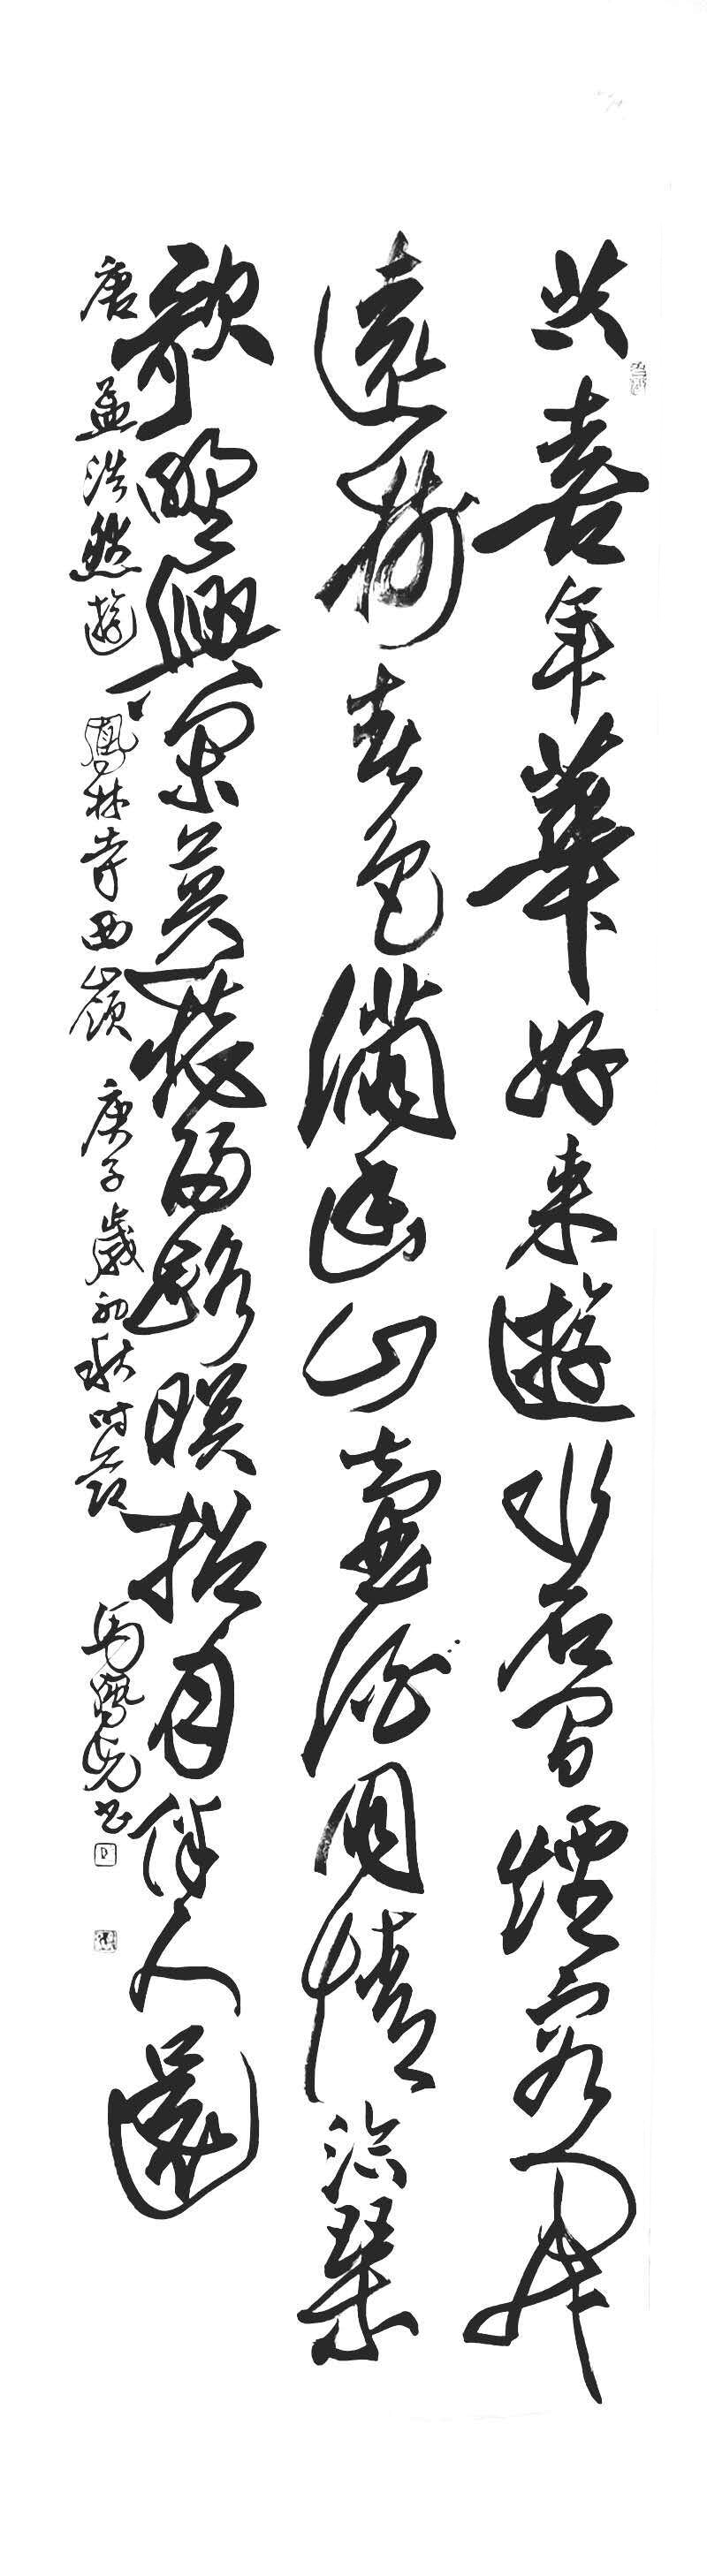 共喜年華好来遊水石間煙容開
遠樹春色滿幽山壺酒朋情洽琴
歌野興閑莫愁歸路暝招月伴人還
唐孟浩然遊鳳林寺西嶺 庚子歲初秋時節 馬书